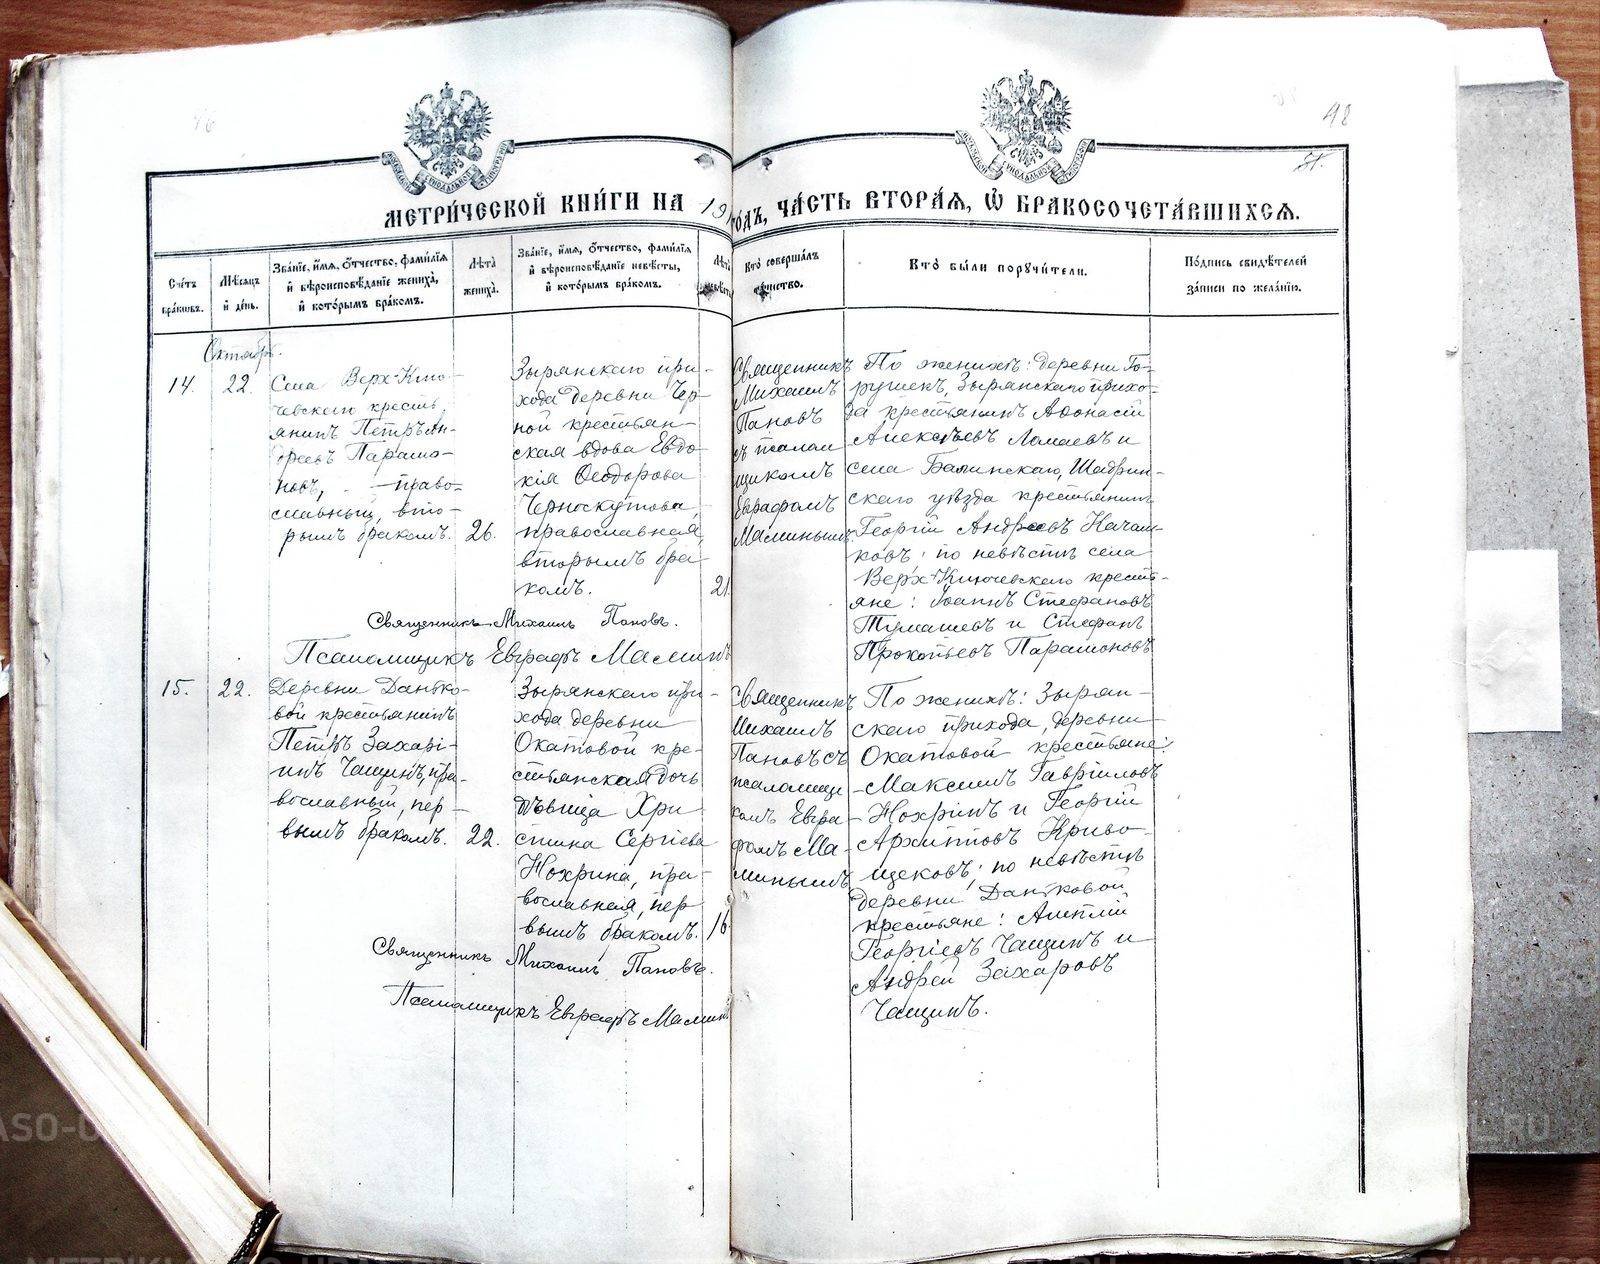 98
МЕТРИ́ЧЕСКОЙ КНИ́ГИ НА 191 ГО́ДЪ, ЧА́СТЬ ВТОРА́Я, Ѽ БРАКОСОЧЕТА́ВШИХСЯ.
Сче́тъ бра́кѡвъ.
Мѣ́сяцъ и҆ де́нь.
Зва́нїе, и҆́мя, ѻ҆́тчество, фами́лїя
и҆ вѣроисповѣ́данїе жениха̀,
и҆ кото́рымъ бра́комъ.
Лѣ́та жениха̀.
Зва́нїе, и҆́мя, ѻ҆́тчество, фами́лїя
и҆ вѣроисповѣ́данїе невѣ́сты,
и҆ кото́рымъ бра́комъ.
Лѣ́та невѣ́сты
Кто̀ соверша́лъ
та́инство.
Кто̀ бы́ли порꙋчи́тели.
По́дпись свидѣ́телей
за́писи по жела́нїю.
Октябрь.
14.
22.
Села Верх-Клю-
чевскаго кресть-
янинъ Петръ Ан-
дреевъ Парамо-
новъ, право-
славный, вто-
рымъ бракомъ.
26.
Зырянскаго при-
хода деревни Чер-
ной крестьян-
ская вдова Евдо-
кія Ѳеодорова
Черноскутова,
православная,
вторымъ бра-
комъ.
21.
Священникъ
Михаилъ
Пановъ
съ псалом
щикомъ
Евграфомъ
Маминымъ
По женихѣ: деревни Го-
рушекъ, Зырянскаго прихо-
да крестьянинъ Аѳонасій
Алексѣевъ Ломаевъ и
села Баминскаго, Шадрин-
скаго уѣзда крестьянинъ
Георгій Андреевъ Качал-
ковъ; по невѣстѣ села
Верх-Ключевскаго кресть-
яне: Іоаннъ Стефановъ
Тумашевъ и Стефанъ
Прокопьевъ Парамоновъ
Священникъ Михаилъ Пановъ.
Псаломщикъ Евграфъ Маминъ
15.
22.
Деревни Данько-
вой крестьянинъ
Петръ Захарі-
инъ Чащинъ, пра-
вославный, пер-
вымъ бракомъ.
22.
Зырянскаго при-
хода деревни
Окатовой кре-
стьянская дочь
дѣвица Хри
стина Сергіева
Нохрина, пра-
вославная, пер
вымъ бракомъ.
16.
Священникъ
Михаилъ
Пановъ съ
псаломщи
комъ Евгра
фомъ Ма-
минымъ
По женихѣ: Зырян-
скаго прихода, деревни
Окатовой крестьяне:
Максимъ Гавріиловъ
Нохринъ и Георгій
Архиповъ Криво-
щековъ; по невѣстѣ
деревни Даньковой
крестьяне:
Георгіевъ Чащинъ и
Андрей Захаровъ
Чащинъ.
Священникъ Михаилъ Пановъ.
Псаломщикъ Евграфъ Маминъ